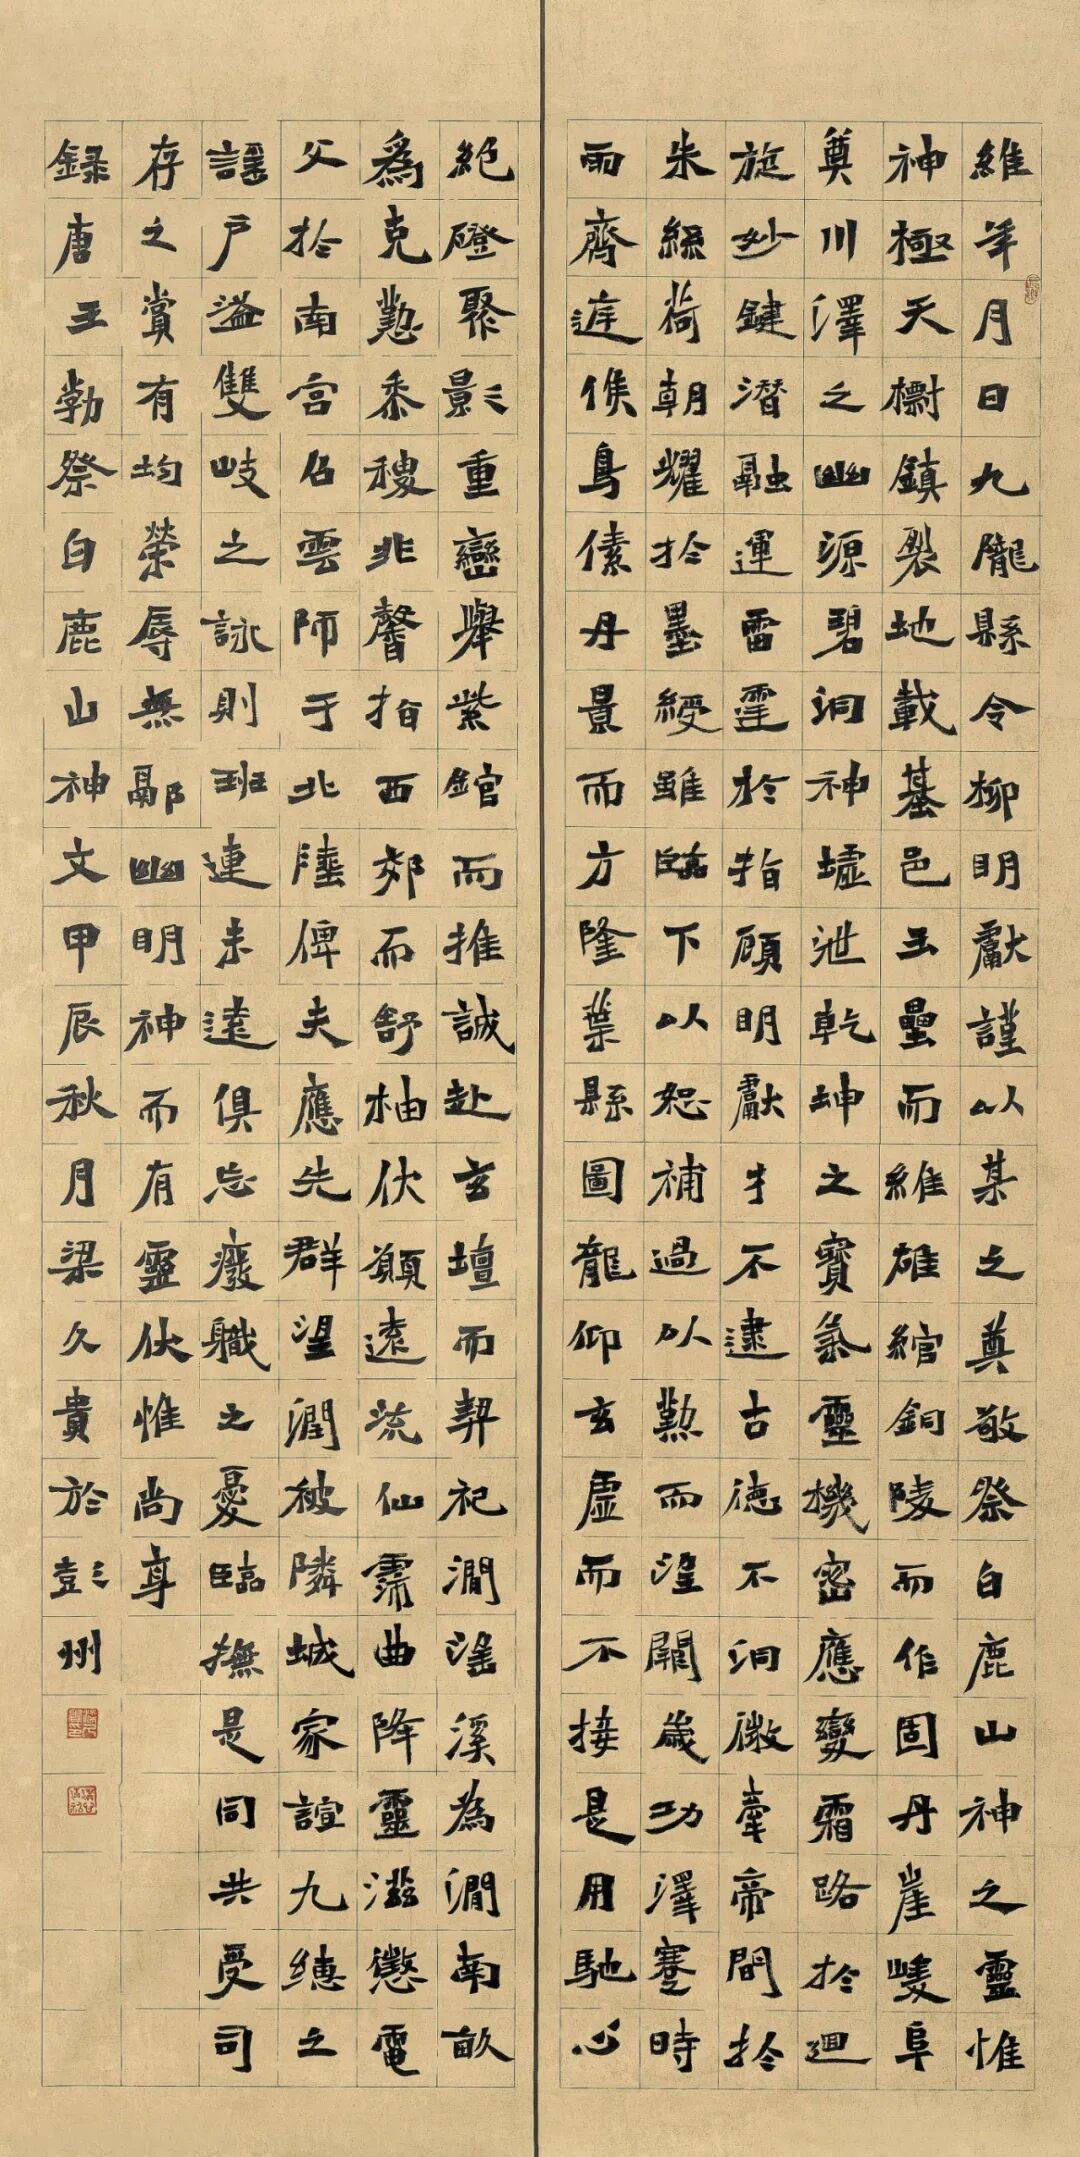 維年月日九隴縣令柳明獻謹以某之奠敬祭白鹿山神之靈惟
神極天櫛鎮裂地載基邑玉壘而維雄綰銅陵而作固丹崖崚阜
奠川澤之幽源碧洞神墟泄乾坤之寶氣靈機密應變霜路於迴
旋妙鍵潛融運雷霆於指顧明獻才不逮古德不洞微牽帝間於
朱絲荷朝耀於墨綬雖臨下以恕補過以勲而淫閼歲功澤蹇時
雨齊連侯鳥傃丹景而方隆葉縣圖龍仰玄虛而不接是用馳心
絕磴聚影重巒舉紫錧而推誠赴玄壇而契祀澗謠溪為澗南畝
為克懃黍稷非馨指西郊而舒柚伏願遠流仙霈曲降靈滋懲電
父於南宮召雲師于北陸俾夫應先群望潤被隣城家諠九穗之
謡戶溢雙岐之詠則班連未遠俱忘癈職之憂臨撫是同共受司
存之賞有均榮辱無鬲阝幽明神而有靈伏惟尚享
錄唐王勃祭白鹿山神文甲辰秋月梁久貴於彭州